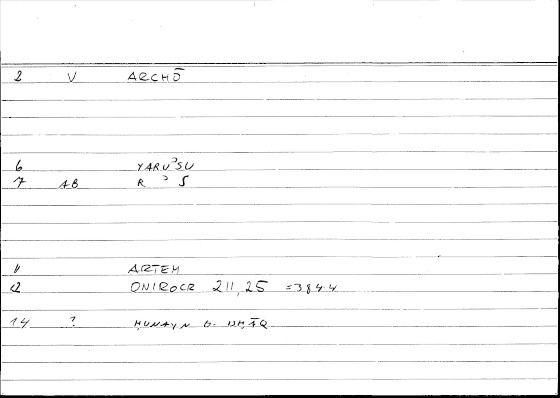 2 V ARCHŌ
6 YARUʾSU
7 AB R ʾ S
11 ARTEM
12 ONIROCR 211,25 =384.4
14 ? ḤUNAYN B. ISḤĀQ